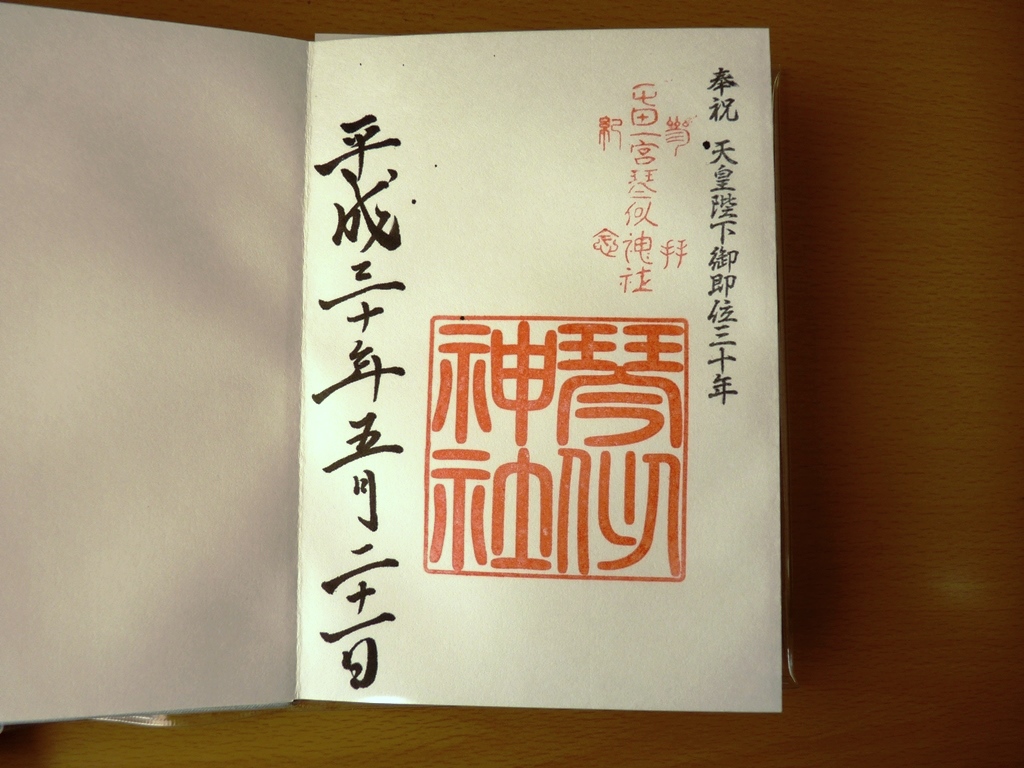 奉祝 天皇陛下御即位三十年
參拝
屯田一宮琴似神社
紀念
琴似
神社
平成三十年五月二十一日